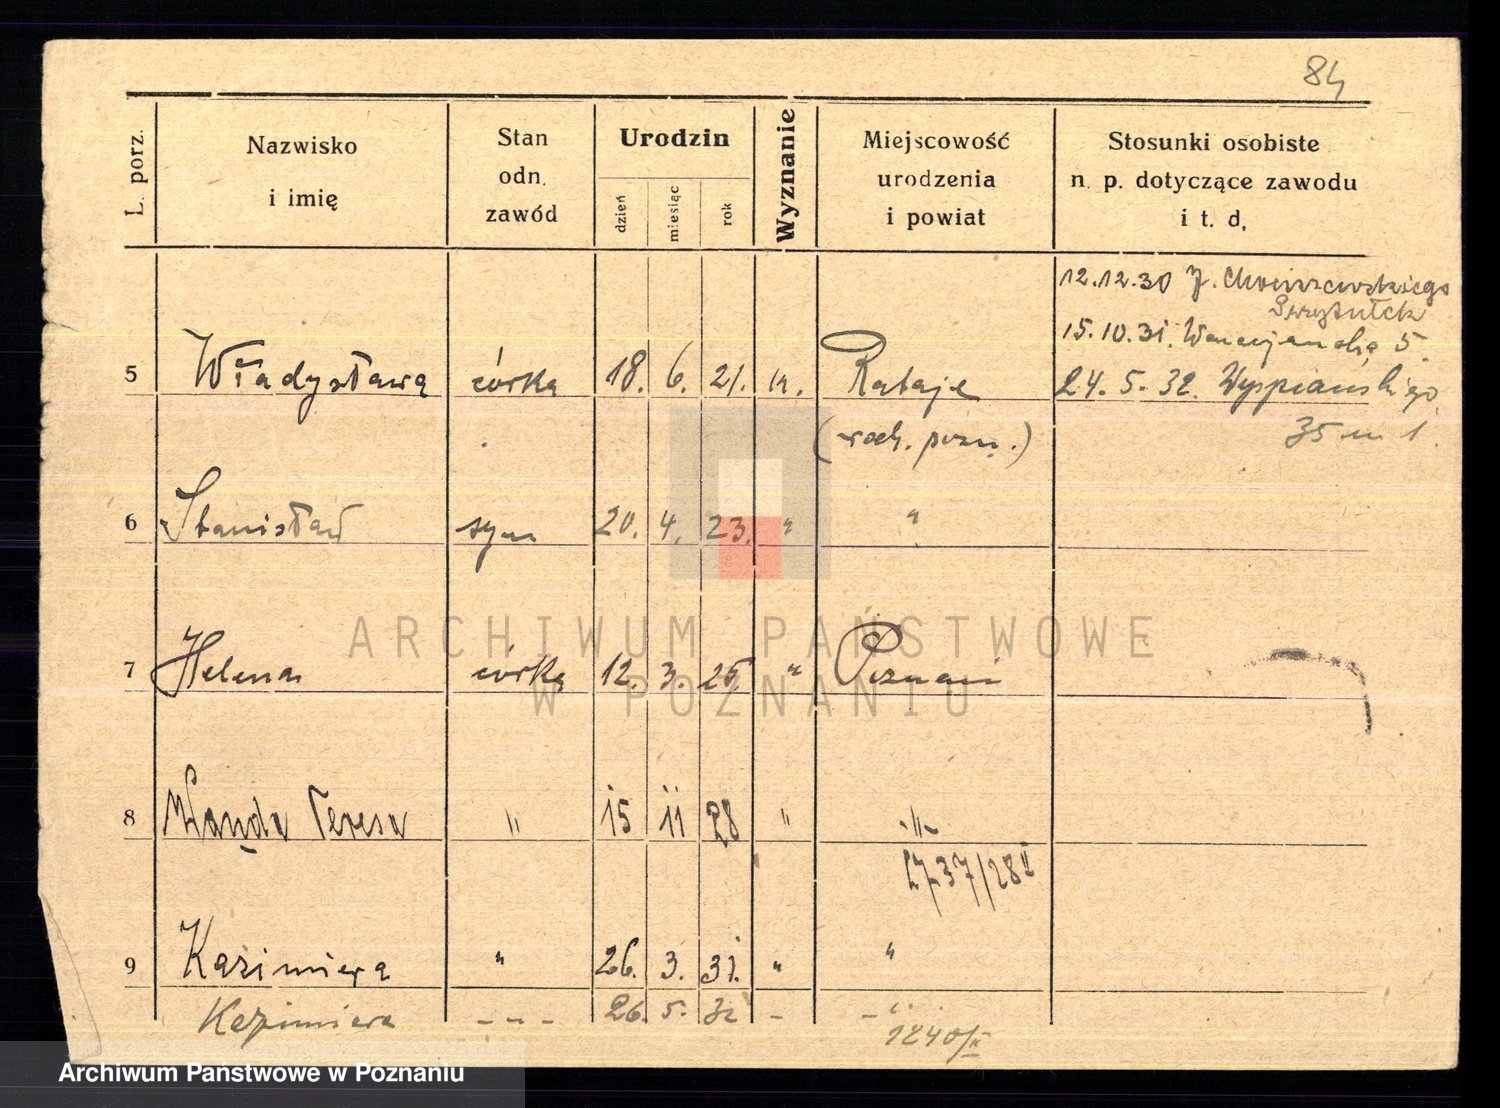 84
L. porz.
Nazwisko
i imię
Stan
odn.
zawód
Urodzin
dzień
miesiąc
rok
Wyznanie
Miejscowość
urodzenia
i powiat
Stosunki osobiste
n. p. dotyczące zawodu
i t. d.
12.12.30 J.
15.10.31. 5.
5 Władysława córka 18. 6. 21. k. Rataje 24. 5. 32. Wyspiańskiego
35 m 1.
6 Stanisław syn 20. 4. 23. " "
7 Helena córka 12. 3. 25. " Poznań
ARCHIWUM PAŃSTWOWE
W POZNANIU
8 Wanda Teresa " 15 11 28 " -"-
2737/28 II
9 Kazimiera " 26. 3. 31. " "
Kazimiera - - - 26. 5. - -"-
1240/II
Archiwum Państwowe w Poznaniu